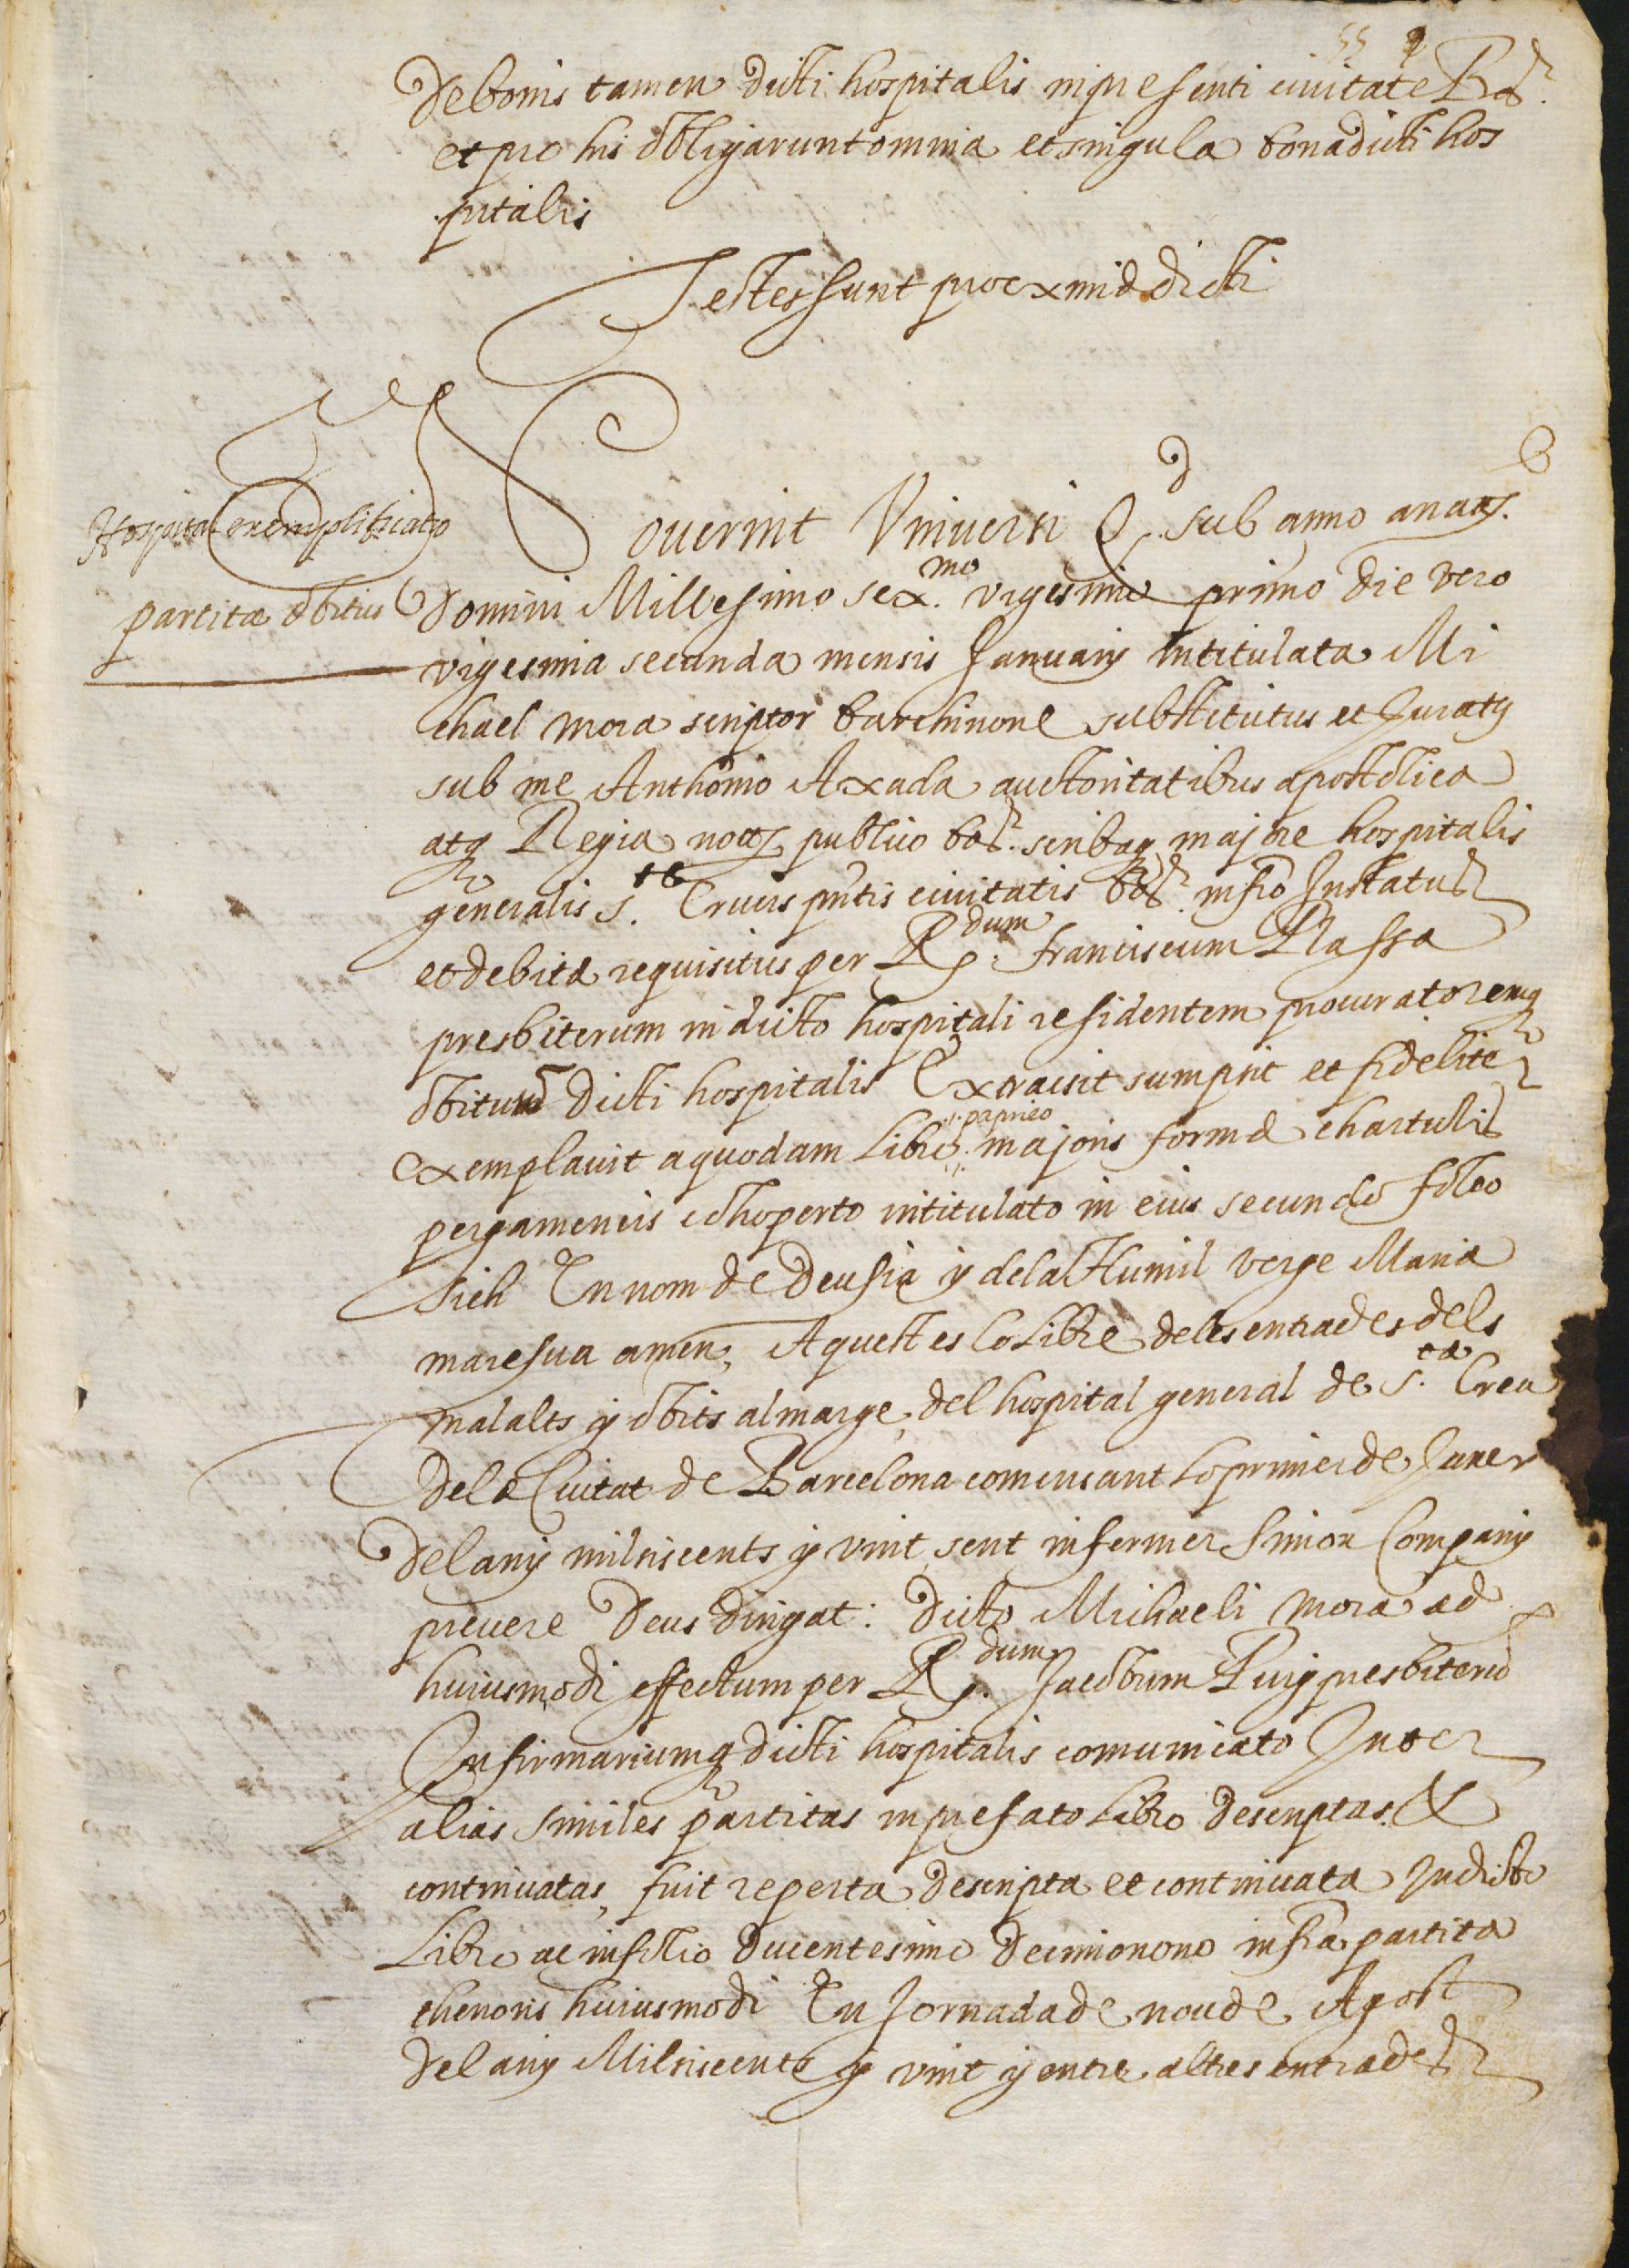 55
de bonis tamen dicti hospitalis in presenti civitate Bar.
et pro his obligarunt omnia et singula bona dicti hos
pitalis
Testes sunt proxime dicti
Hospital exemplificatio
partita obitus
Noverint Universi Qd. sub anno a nat.
Domini Millesimo sex.mo vigesimo primo die vero
vigesima secunda mensis Januarii intitulata Mi
chael Mora scriptor barchinone substitutus et juratus
sub me Anthonio Axada auctoritatibus apostolica
atq Regia not. publico bar. scribaq majore hospitalis
generalis S.te Crucis pntis civitatis bar. infro Instatus
et debite requisitus per R.dum franciscum Plassa
presbiterum in dicto hospitali residentem procuratoremq
obituum dicti hospitalis Extraxit sumpsit et fideliter
exemplavit a quodam Libro papireo majoris forme chartulis
pergameneis cohoperto intitulato in eius secundo foleo
sich En nom de Deu sia y dela Humil verge Maria
mare sua amen, Aquest es lo Libre deles entrades dels
malalts y obits al marge, del hospital general de S.ta Creu
dela Ciutat de Barcelona comensant lo primer de Janer
del any mil siscents y vint, sent infermer Simon Company
prevere Deus dirigat: dicto Michaeli Mora ad
huiusmodi effectum per R.dum Jacobum Puig presbiterū
Infirmariumq dicti hospitalis comunicato Inter
alias similes partitas in prefato Libro descriptas &
continuatas, fuit reperta descripta et continuata In dicto
Libro ac in folio ducentesimo decimonono infra partita
thenoris huiusmodi En Jornada de nou de Agost
del any Mil siscents y vint y entre altres entrades